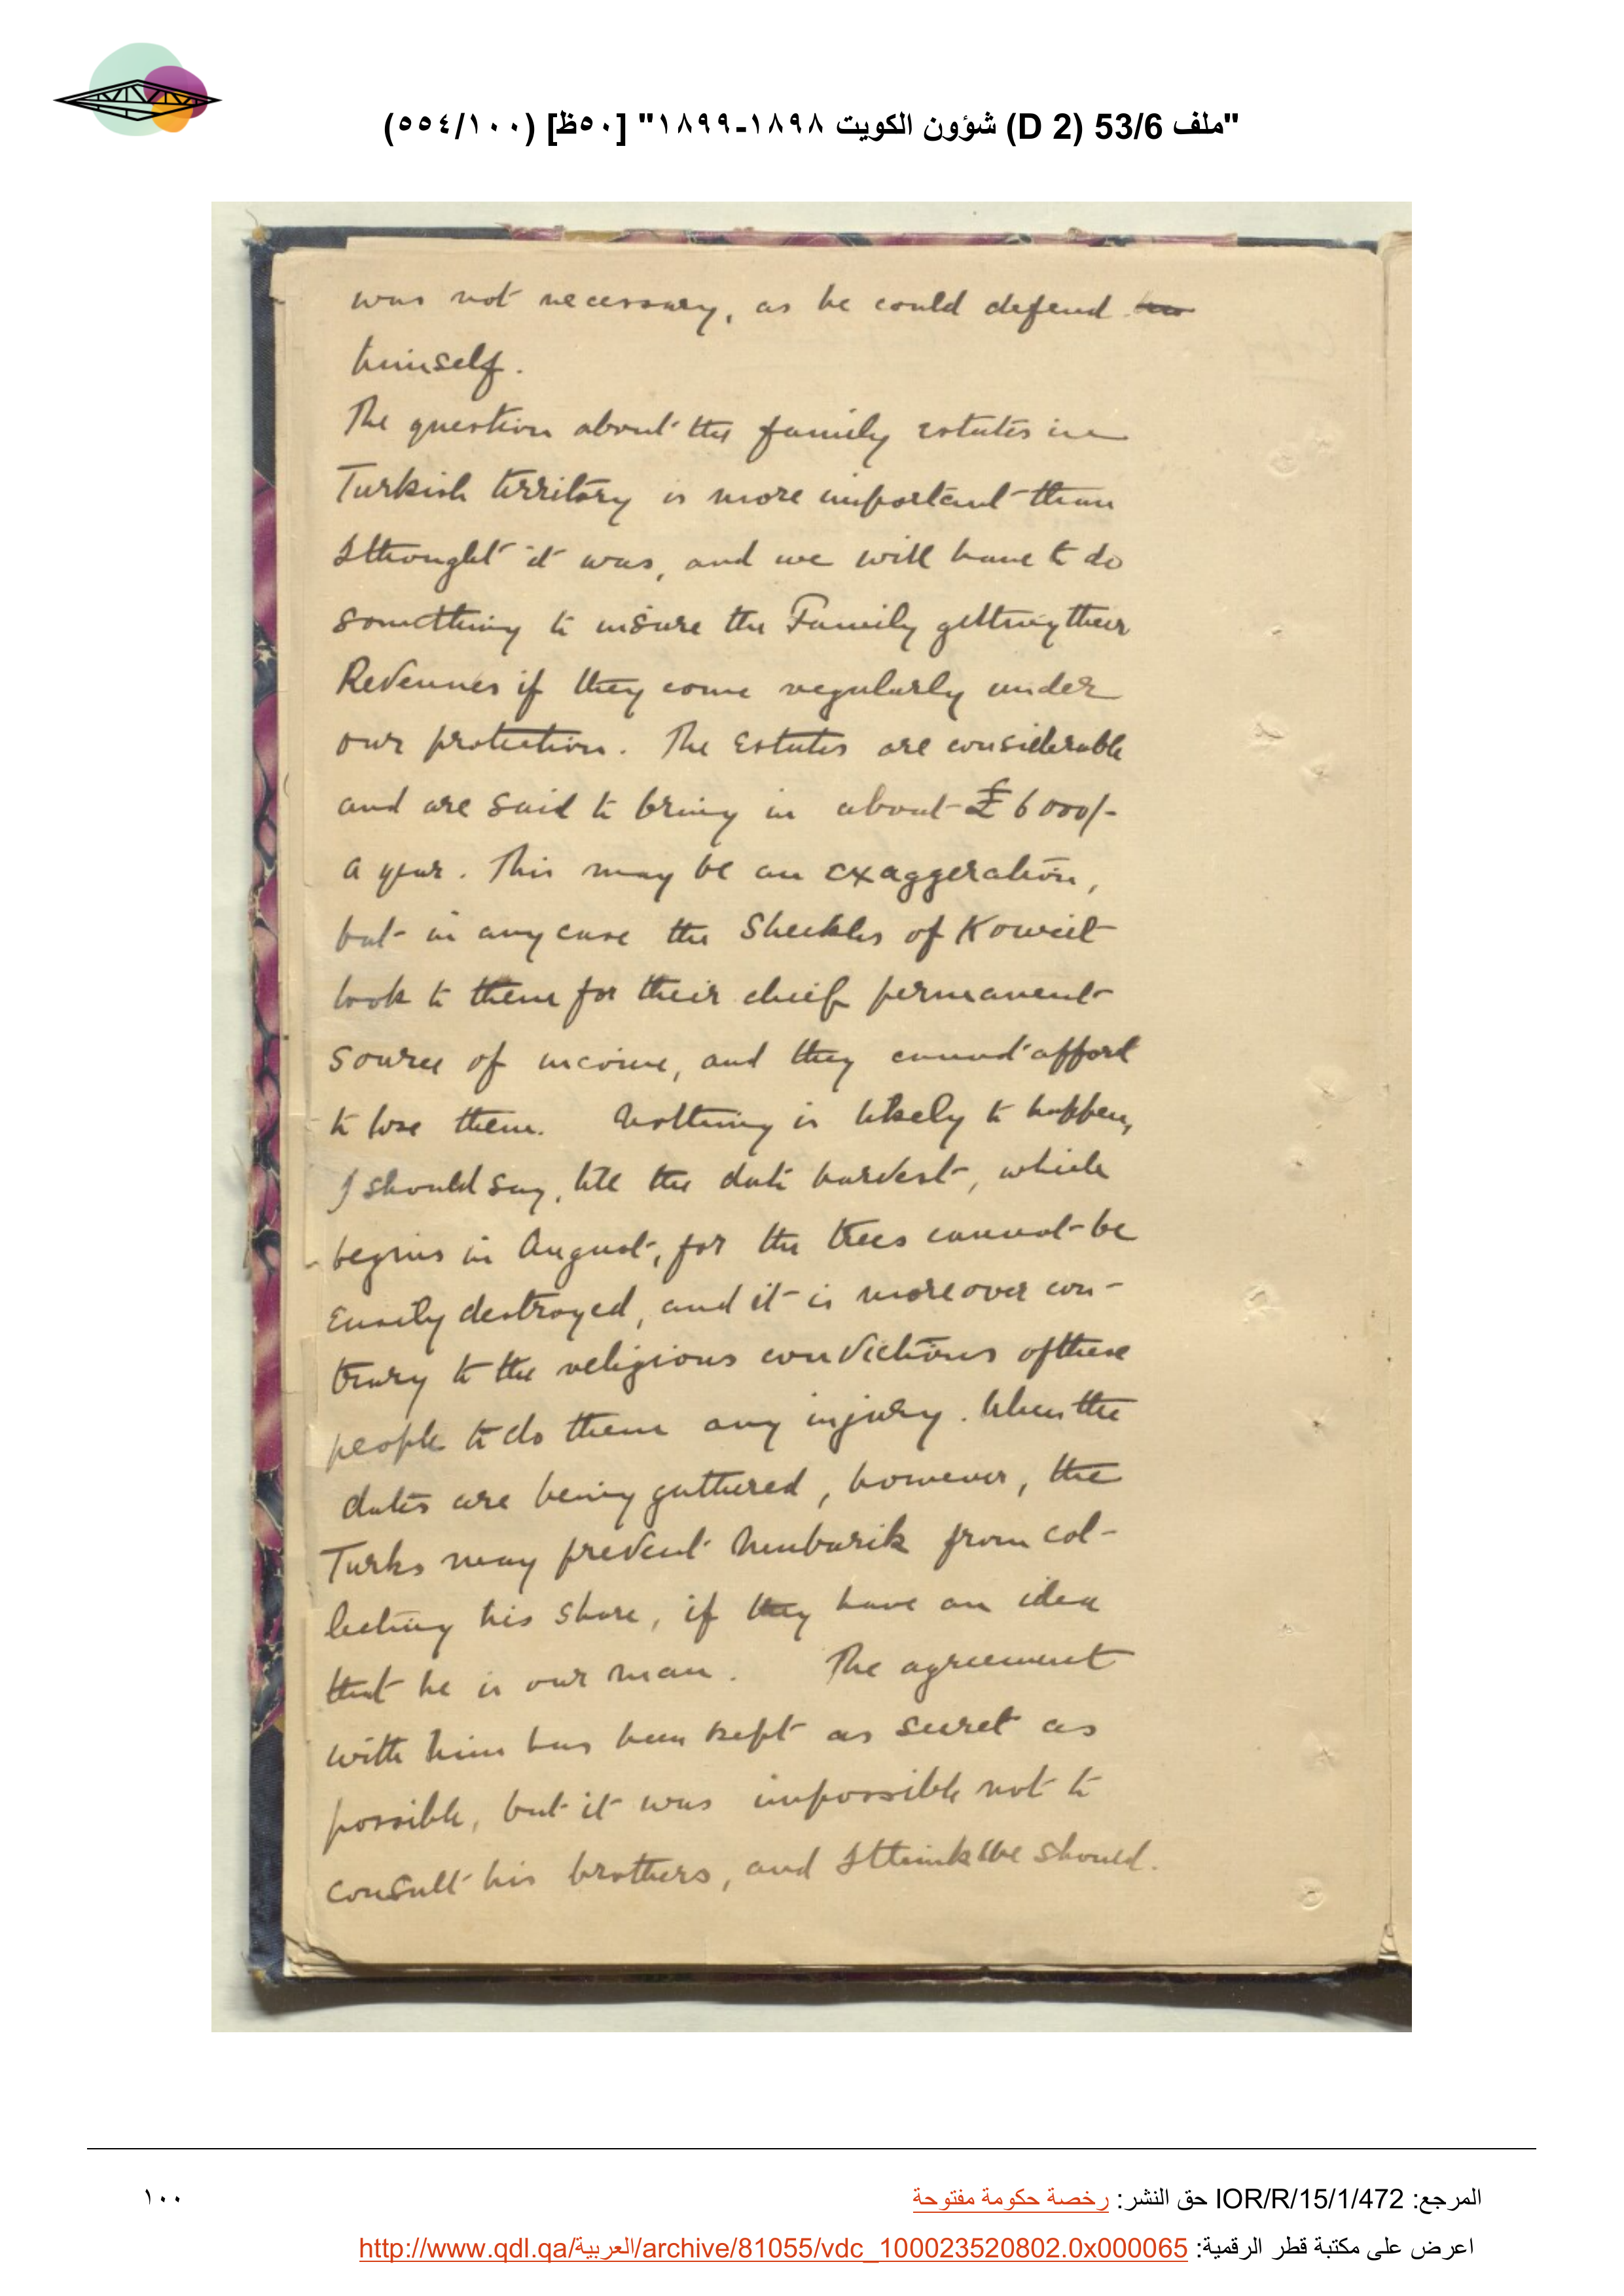 "ملف 53/6 (D 2) شؤون الكويت ١٨٩٨-١٨٩٩" [٥٠ظ] (٥٥٤/١٠٠)
was not necessary, as he could defend
himself.
The question about the family estates in
Turkish territory is more important than
I thought it was, and we will have to do
something to insure the Family getting their
Revenues if they come regularly under
our protection. The Estates are considerable
and are said to bring in about £6000/-
a year. This may be an exaggeration,
but in any case the Sheikhs of Koweit
look to them for their chief permanent
source of income, and they cannot afford
to lose them. Nothing is likely to happen,
I should say, till the date harvest, which
begins in August, for the trees cannot be
easily destroyed, and it is moreover con-
trary to the religious convictions of these
people to do them any injury. When the
dates are being gathered, however, the
Turks may prevent Mubarik from col-
lecting his share, if they have an idea
that he is our man. The agreement
with him has been kept as secret as
possible, but it was impossible not to
consult his brothers, and I think we should.
المرجع: IOR/R/15/1/472 حق النشر: رخصة حكومة مفتوحة
١٠٠
اعرض على مكتبة قطر الرقمية: http://www.qdl.qa/العربية/archive/81055/vdc_100023520802.0x000065